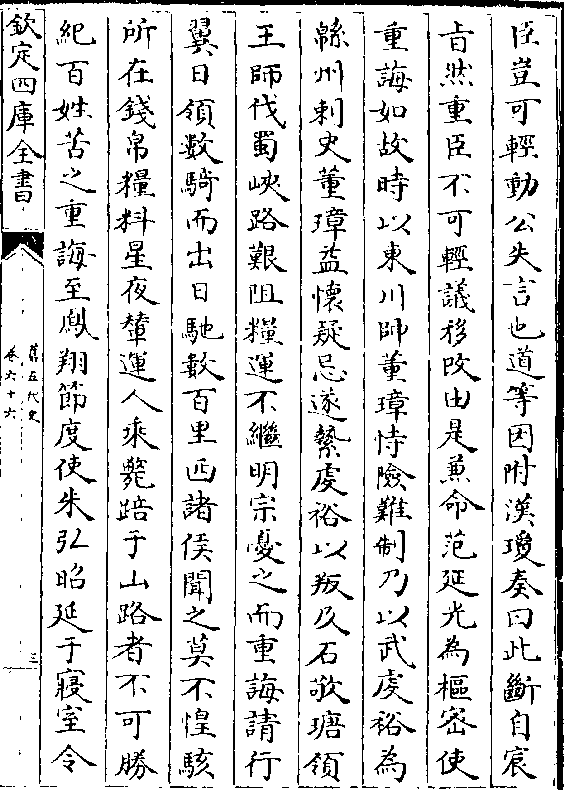 臣豈可輕動公失言也道等因附漢瓊奏曰此斷自宸
旨然重臣不可輕議移改由是兼命范延光為樞密使
重誨如故時以東川帥董璋恃險難制乃以武虔裕為
緜州刺史董璋益懷疑忌遂縶虔裕以叛及石敬瑭領
王師伐蜀峽路艱阻糧運不繼明宗憂之而重誨請行
翼日領數騎而出日馳數百里西諸侯聞之莫不惶駭
所在錢帛糧料星夜輦運人乘斃踣于山路者不可勝
紀百姓苦之重誨至鳳翔節度使朱弘昭延于寢室令
欽定四庫全書
舊五代史
卷六十六
三